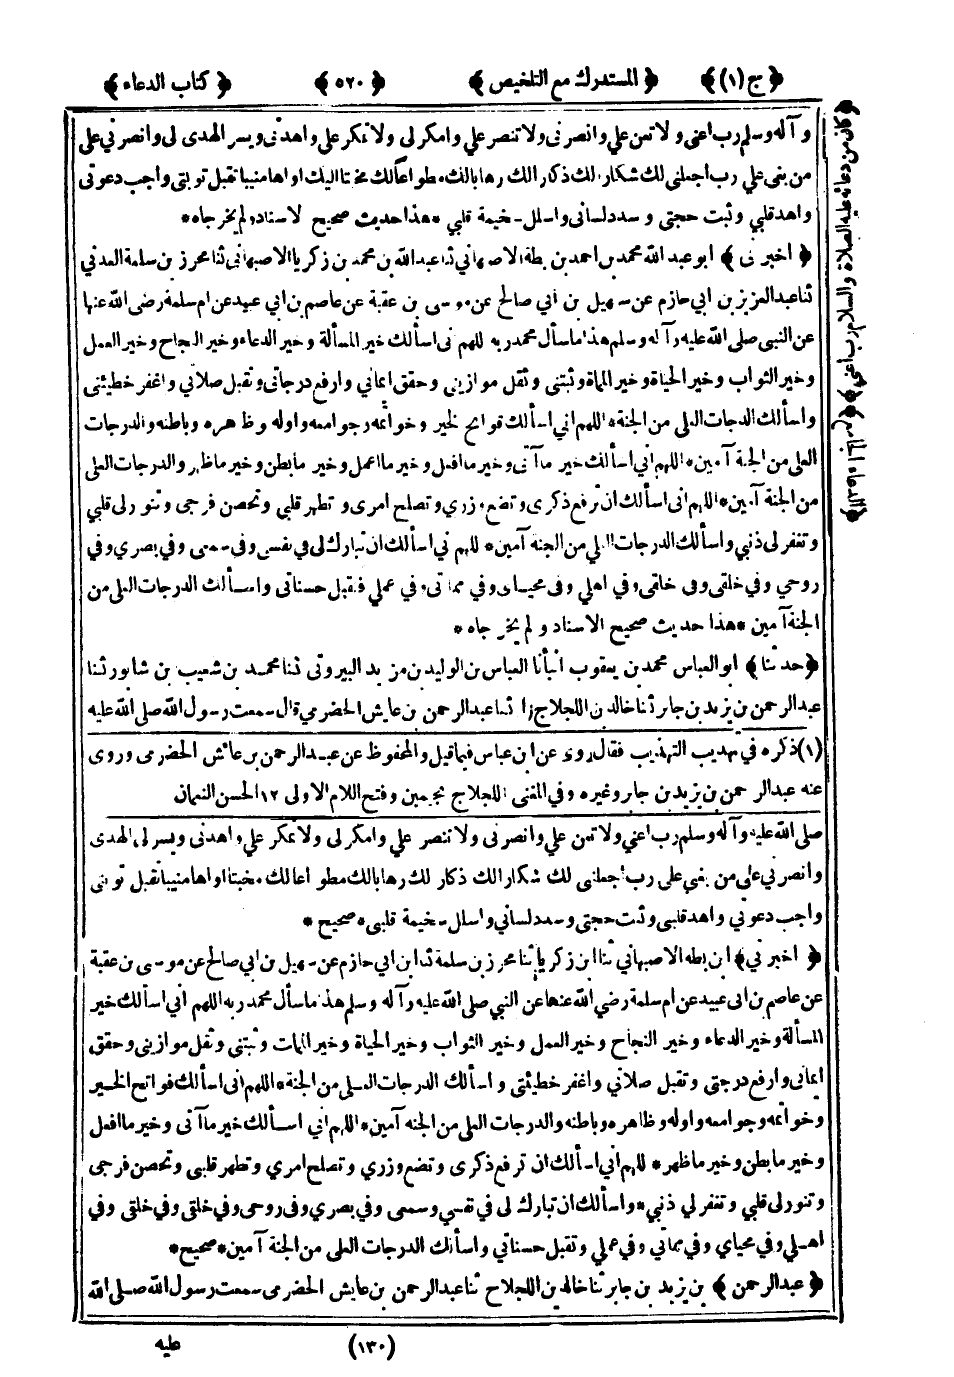 ﴿ ج (١) ﴾ ﴿ المستدرك مع التلخيص ﴾ ﴿ ٥٢٠ ﴾ ﴿ كتاب الدعاء ﴾
وآله وسلم رب اعني ولا تعن علي وانصرني ولا تنصر علي وامكر لى ولا تمكر علي واهدنى ويسر الهدى لى وانصرني على
من بغى علي رب اجعلني لك شكارا لك ذكارا لك رهابا لك مطواعا لك مخبتا اليك اواها منيبا تقبل توبتي واجب دعوتى
واهد قلبي وثبت حجتي وسدد لسانى واسلل سخيمة قلبي * هذا حديث صحيح الاسناد ولم يخرجاه *
﴿ اخبرنى ﴾ ابو عبد الله محمد بن احمد بن بطة الاصبهاني ثنا عبد الله بن محمد بن زكريا الاصبهانى ثنا محرز بن سلمة العدني
ثنا عبد العزيز بن ابي حازم عن سهيل بن ابي صالح عن موسى بن عقبة عن عاصم بن ابي عبيد عن ام سلمة رضى الله عنها
عن النبى صلى الله عليه وآله وسلم هذا ما سأل محمد ربه اللهم انى اسألك خير المسألة وخير الدعاء وخير النجاح وخير العمل
وخير الثواب وخير الحياة وخير المماة وثبتنى وثقل موازيني وحقق ايماني وارفع درجاتى وتقبل صلاتي واغفر خطيئتى
واسألك الدرجات العلى من الجنة * اللهم اني اسألك فواتح الخير وخواتمه وجوامعه واوله وظاهره وباطنه والدرجات
العلى من الجنة آمين * اللهم اني اسألك خير ما آتى وخير ما افعل وخير ما اعمل وخير ما بطن وخير ما ظهر والدرجات العلى
من الجنة آمين * اللهم انى اسألك ان ترفع ذكرى وتضع وزري وتصلح امرى وتطهر قلبي وتحصن فرجى وتنور لى قلبي
وتغفر لى ذنبي واسألك الدرجات العلي من الجنة آمين * اللهم انى اسألك ان تبارك لى في نفسى وفى سمعى وفي بصري وفي
روحي وفي خلقى وفى خلقى وفي اهلي وفى محياى وفي مماتى وفي عملي فتقبل حسناتى واسألك الدرجات العلى من
الجنة آمين * هذا حديث صحيح الاسناد ولم يخرجاه *
﴿ حدثنا ﴾ ابو العباس محمد بن يعقوب انبأنا العباس بن الوليد بن مزيد البيروتى ثنا محمد بن شعيب بن شابور ثنا
عبد الرحمن بن يزيد بن جابر ثنا خالد بن اللجلاج (١) ثنا عبد الرحمن بن عايش الحضرمي قال سمعت رسول الله صلى الله عليه
(١) ذكره في تهذيب التهذيب فقال روى عن ابن عباس فيما قيل والمحفوظ عن عبد الرحمن بن عائش الحضرمى وروى
عنه عبد الرحمن بن يزيد بن جابر وغيره وفي المغنى اللجلاج بجيمين وفتح اللام الاولى ١٢ الحسن النعمان
صلى الله عليه وآله وسلم رب اعني ولا تعن علي وانصرنى ولا تنصر علي وامكر لى ولا تمكر علي واهدنى ويسر لى الهدى
وانصرني على من بغى على رب اجعلنى لك شكارا لك ذكارا لك رهابا لك مطواعا لك مخبتا اواها منيبا تقبل توبتى
واجب دعوتي واهد قلبى وثبت حجتي وسدد لساني واسلل سخيمة قلبى * صحيح *
﴿ اخبرني ﴾ ابن بطه الاصبهاني ثنا ابن زكريا ثنا محرز بن سلمة ثنا ابن ابي حازم عن سهيل بن ابي صالح عن موسى بن عقبة
عن عاصم بن ابى عبيد عن ام سلمة رضي الله عنها عن النبي صلى الله عليه وآله وسلم هذا ما سأل محمد ربه اللهم اني اسألك خير
المسألة وخير الدعاء وخير النجاح وخير العمل وخير الثواب وخير الحياة وخير الممات وثبتنى وثقل موازينى وحقق
ايمانى وارفع درجتى وتقبل صلاتي واغفر خطيئتى واسألك الدرجات العلى من الجنة * اللهم انى اسألك فواتح الخير
وخواتمه وجوامعه واوله وظاهره وباطنه والدرجات العلى من الجنة آمين * اللهم اني اسألك خير ما آتى وخير ما افعل
وخير ما بطن وخير ما ظهر * اللهم اني اسألك ان ترفع ذكرى وتضع وزري وتصلح امري وتطهر قلبى وتحصن فرجى
وتنور لى قلبي وتغفر لي ذنبي * واسألك ان تبارك لى في نفسي وسمعى وفي بصري وفى روحى وفي خلقى وفي خلقى وفي
اهلي وفي محياي وفي مماتي وفي عملي وتقبل حسناتي واسألك الدرجات العلى من الجنة آمين * صحيح *
﴿ عبد الرحمن ﴾ بن يزيد بن جابر ثنا خالد بن اللجلاج ثنا عبد الرحمن بن عايش الحضرمى سمعت رسول الله صلى الله
(١٣٠) عليه
﴿ كان من دعائه عليه الصلاة والسلام رب اعني ﴾